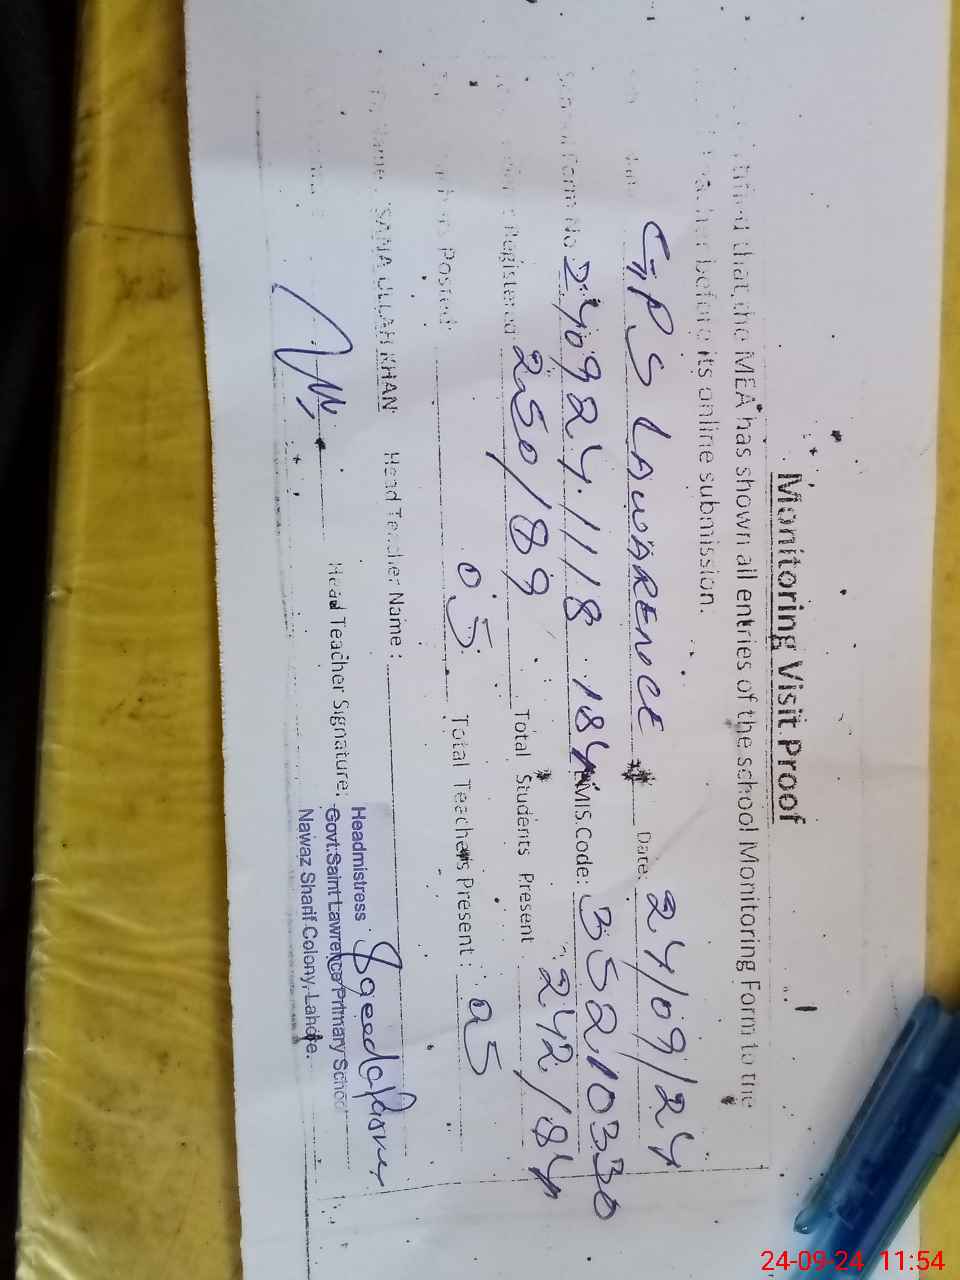 Monitoring Visit Proof
that the MEA has shown all entries of the school Monitoring Form to the
before its online submission.
GPS LAWARENCE Date: 24/09/24
Form No 240924.1118.184 EMIS Code: 35210330
Registered 250/89 Total Students Present 242/84
Posted: 05 Total Teachers Present: 05
Name: SANA ULLAH KHAN Head Teacher Name:
Head Teacher Signature:
Headmistress
Govt: Saint Lawrence Primary School
Nawaz Sharif Colony, Lahore.
24-09-24 11:54